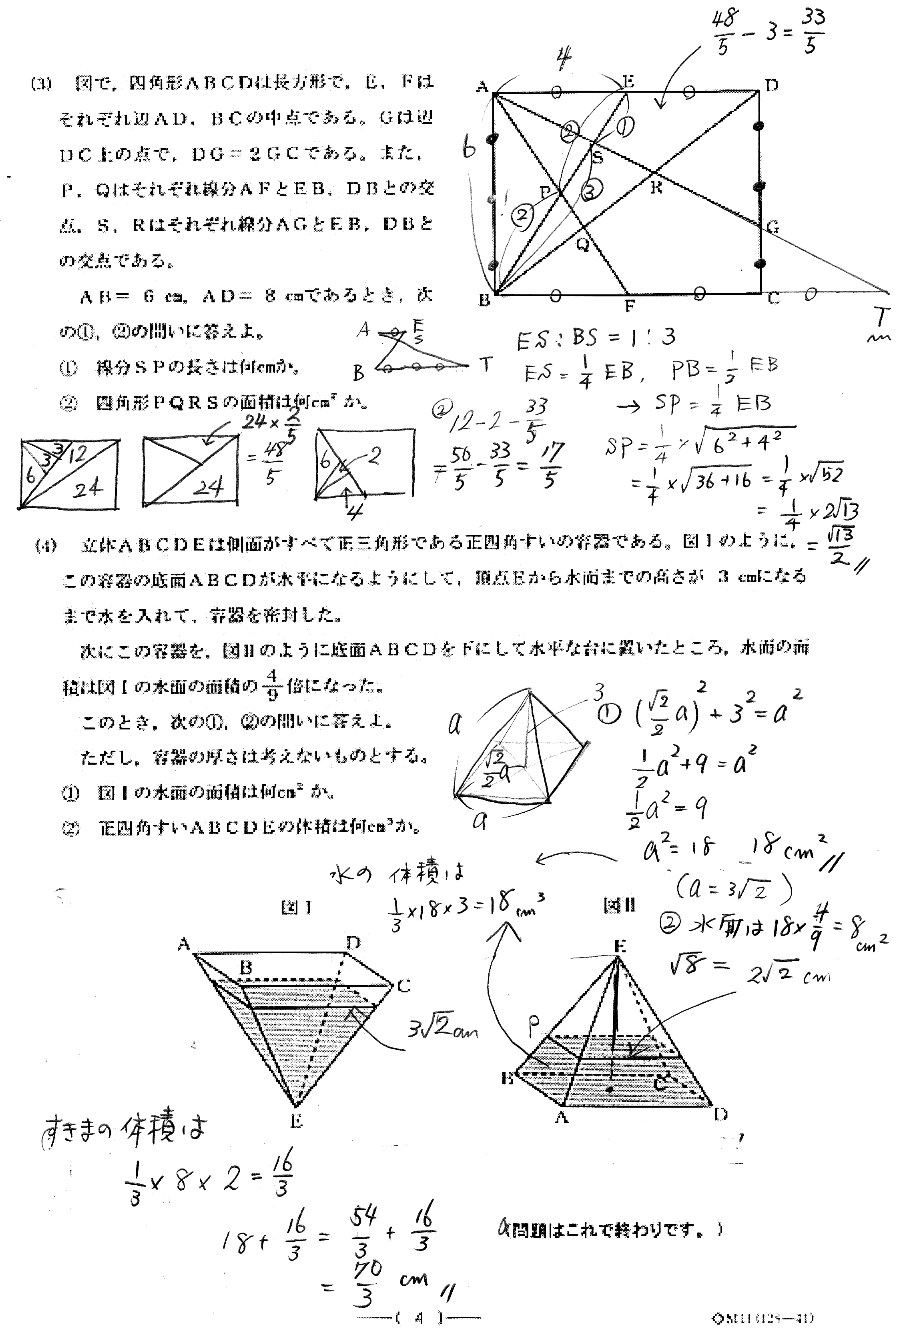 (3) 図で，四角形ＡＢＣＤは長方形で，Ｅ，Ｆは
それぞれ辺ＡＤ，ＢＣの中点である。Ｇは辺
ＤＣ上の点で，ＤＧ＝２ＧＣである。また，
Ｐ，Ｑはそれぞれ線分ＡＦとＥＢ，ＤＢとの交
点，Ｓ，Ｒはそれぞれ線分ＡＧとＥＢ，ＤＢと
の交点である。
ＡＢ＝ 6 cm，ＡＤ＝ 8 cmであるとき，次
の①，②の問いに答えよ。
① 線分ＳＰの長さは何cmか。
② 四角形ＰＱＲＳの面積は何cm²か。
48/5 − 3 = 33/5
4
A E D
6
② ①
S
P R
② ③
Q G
B F C
T
A E
S
B T
ES : BS = 1 : 3
ES = 1/4 EB, PB = 1/2 EB
→ SP = 1/4 EB
SP = 1/4 × √6²+4²
= 1/4 × √36+16 = 1/4 × √52
= 1/4 × 2√13
= √13/2 〃
② 12 − 2 − 33/5
= 56/5 − 33/5 = 17/5
24 × 2/5
= 48/5
6 3 3 12
24
24
6 4 2
4
(4) 立体ＡＢＣＤＥは側面がすべて正三角形である正四角すいの容器である。図Ⅰのように，
この容器の底面ＡＢＣＤが水平になるようにして，頂点Ｅから水面までの高さが 3 cmになる
まで水を入れて，容器を密封した。
次にこの容器を，図Ⅱのように底面ＡＢＣＤを下にして水平な台に置いたところ，水面の面
積は図Ⅰの水面の面積の4/9倍になった。
このとき，次の①，②の問いに答えよ。
ただし，容器の厚さは考えないものとする。
① 図Ⅰの水面の面積は何cm²か。
② 正四角すいＡＢＣＤＥの体積は何cm³か。
a
3
√2/2 a
a
① (√2/2 a)² + 3² = a²
1/2 a² + 9 = a²
1/2 a² = 9
a² = 18 18 cm² 〃
(a = 3√2)
水の体積は
1/3 × 18 × 3 = 18 cm³
② 水面は 18 × 4/9 = 8 cm²
√8 = 2√2 cm
図Ⅰ
A D
B
C
3√2 cm
E
図Ⅱ
E
P
B C
A D
すきまの体積は
1/3 × 8 × 2 = 16/3
18 + 16/3 = 54/3 + 16/3
= 70/3 cm 〃
問題はこれで終わりです。）
―( 4 )―
◇M11(128―41)